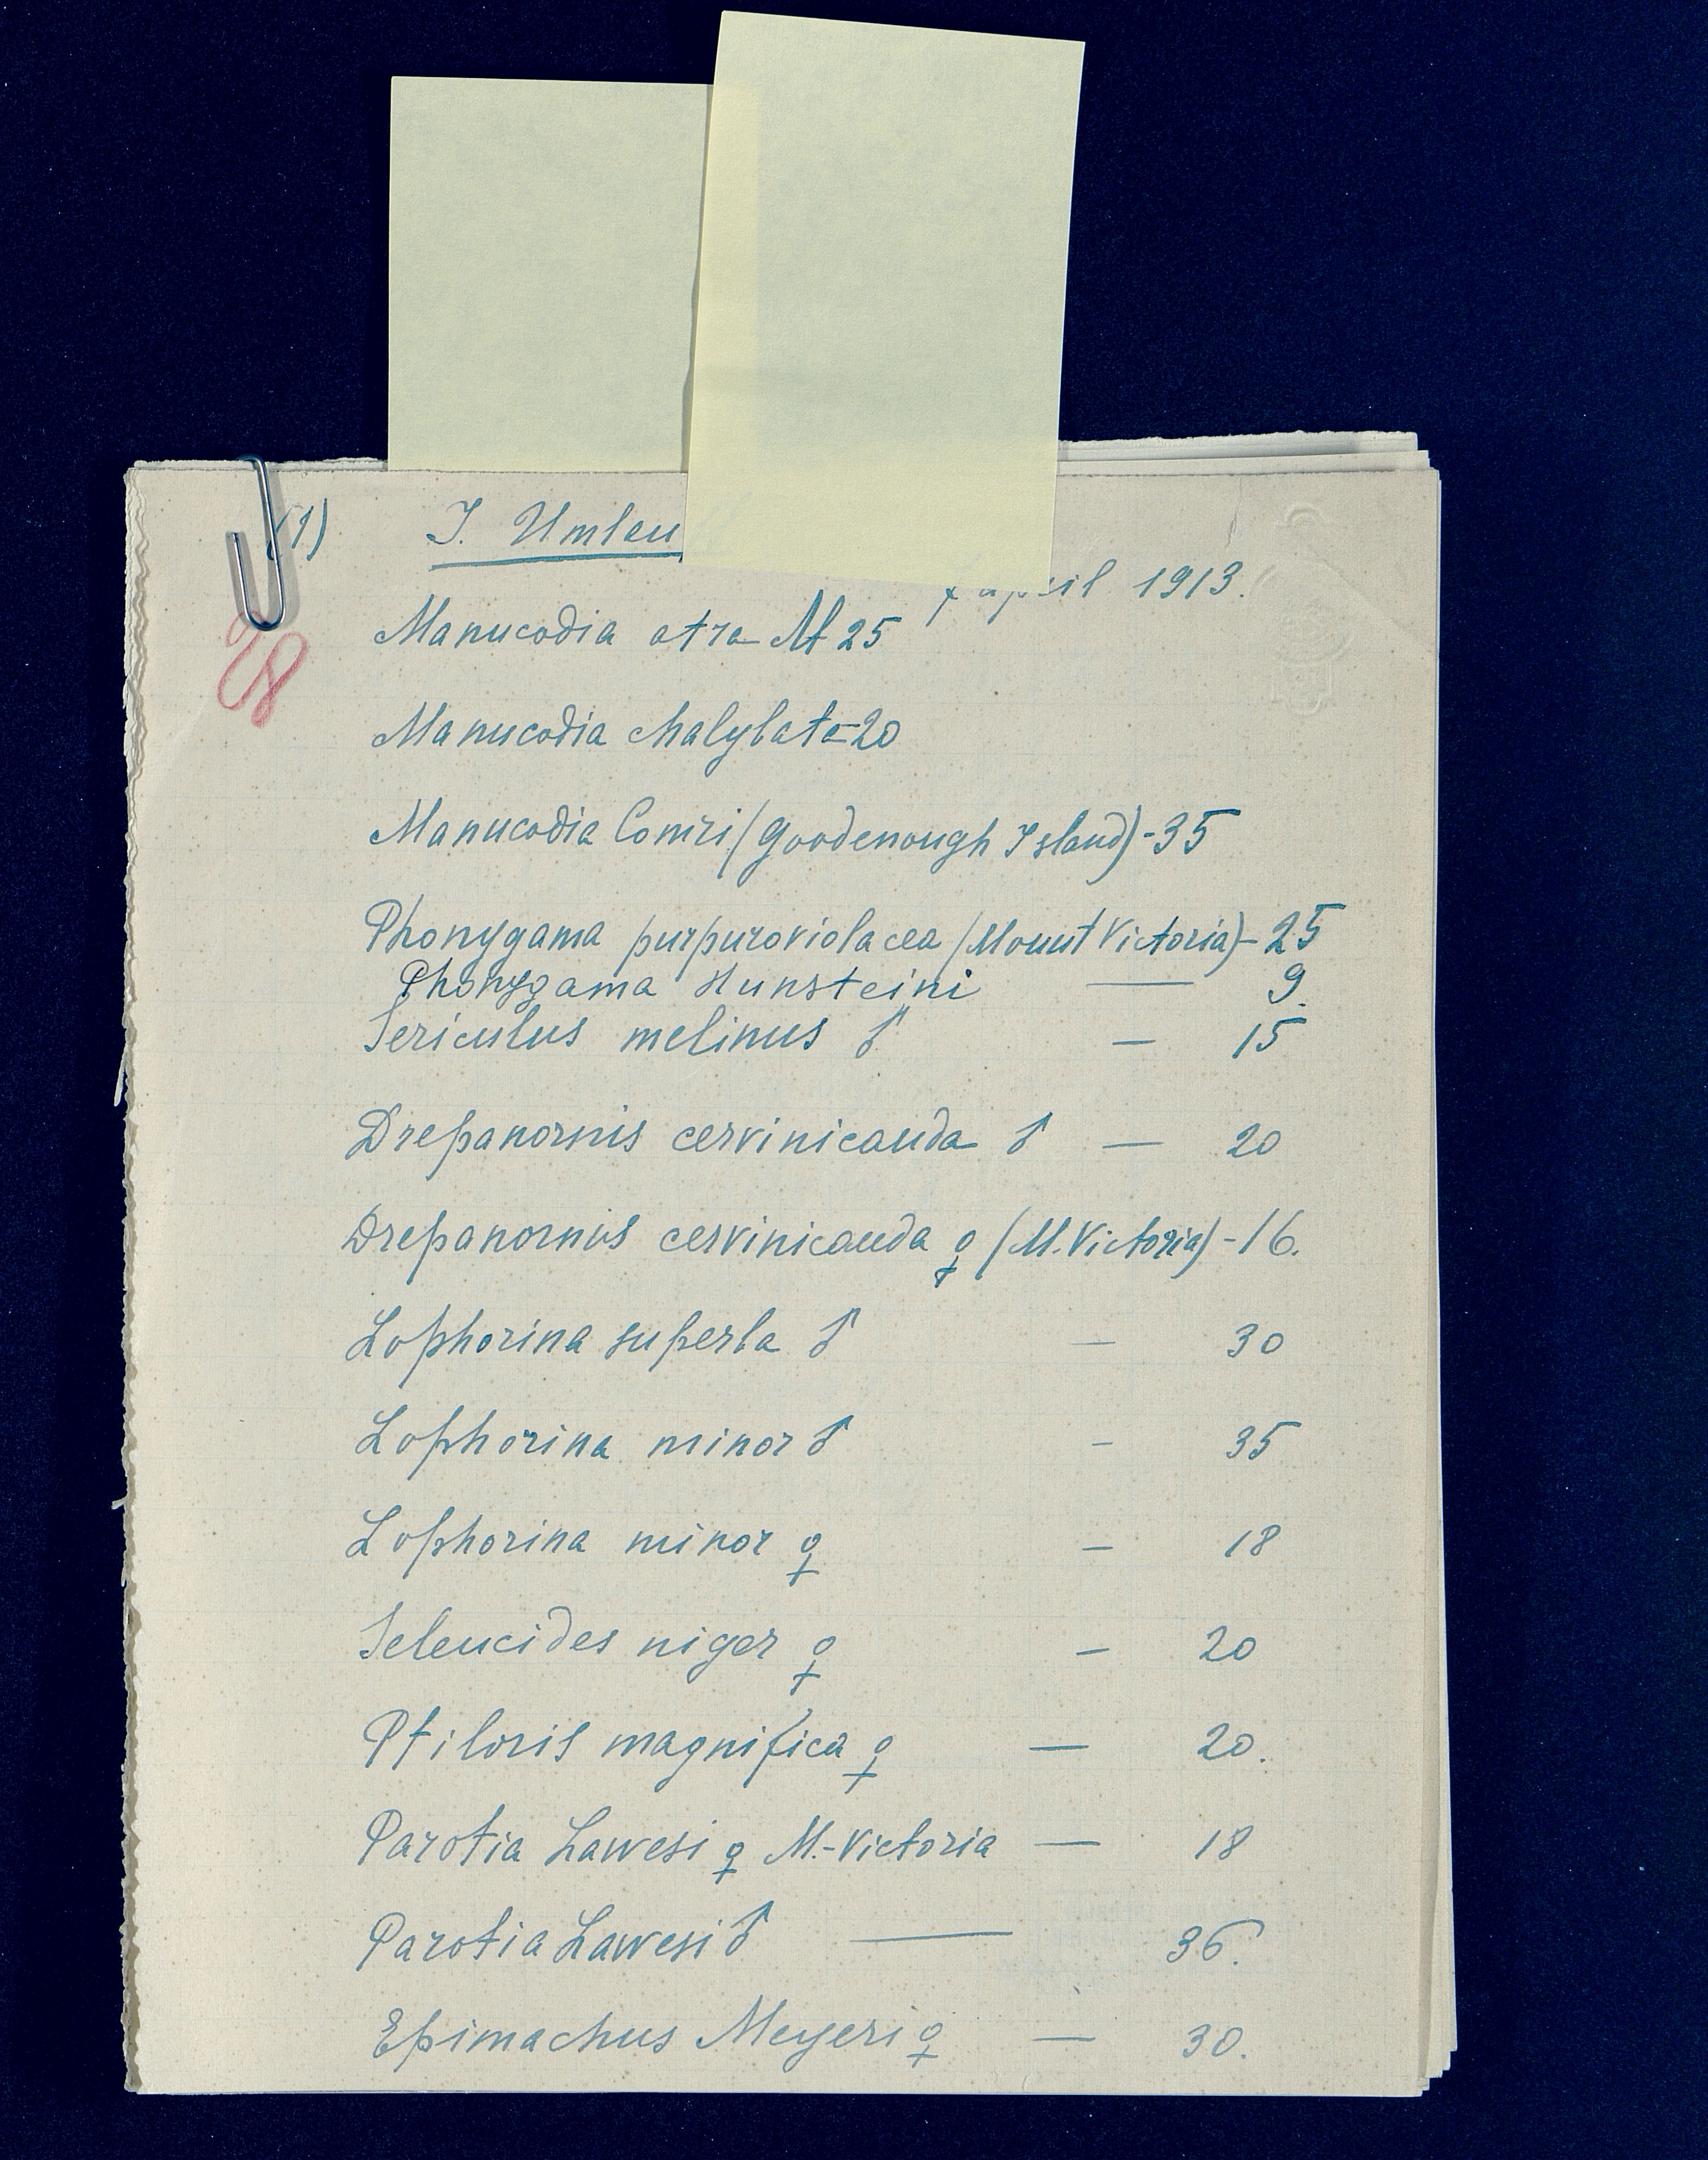 (1) J. Umlau
april 1913.
28
Manucodia atra M 25
Manucodia chalybata-20
Manucodia Comri (Goodenough Island)-35
Phonygama purpuroviolacea (Mount Victoria)-25
Phonygama Hunsteini — 9.
Sericulus melinus ♂ — 15
Drepanornis cervinicauda ♂ — 20
Drepanornis cervinicauda ♀ (M. Victoria) - 16.
Lophorina superba ♂ — 30
Lophorina minor ♂ - 35
Lophorina minor ♀ - 18
Seleucides niger ♀ - 20
Ptiloris magnifica ♀ — 20.
Parotia Lawesi ♀ M.-Victoria — 18
Parotia Lawesi ♂ — 36.
Epimachus Meyeri ♀ — 30.